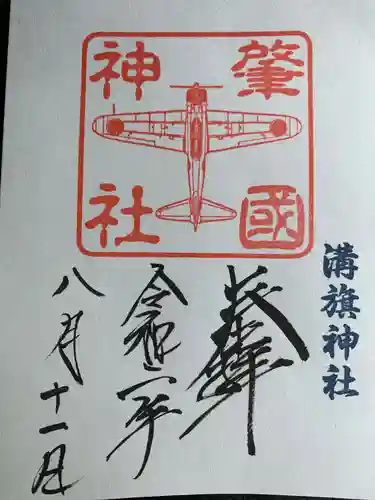 肇國
神社
溝旗神社
奉拝
令和二年
八月十一日